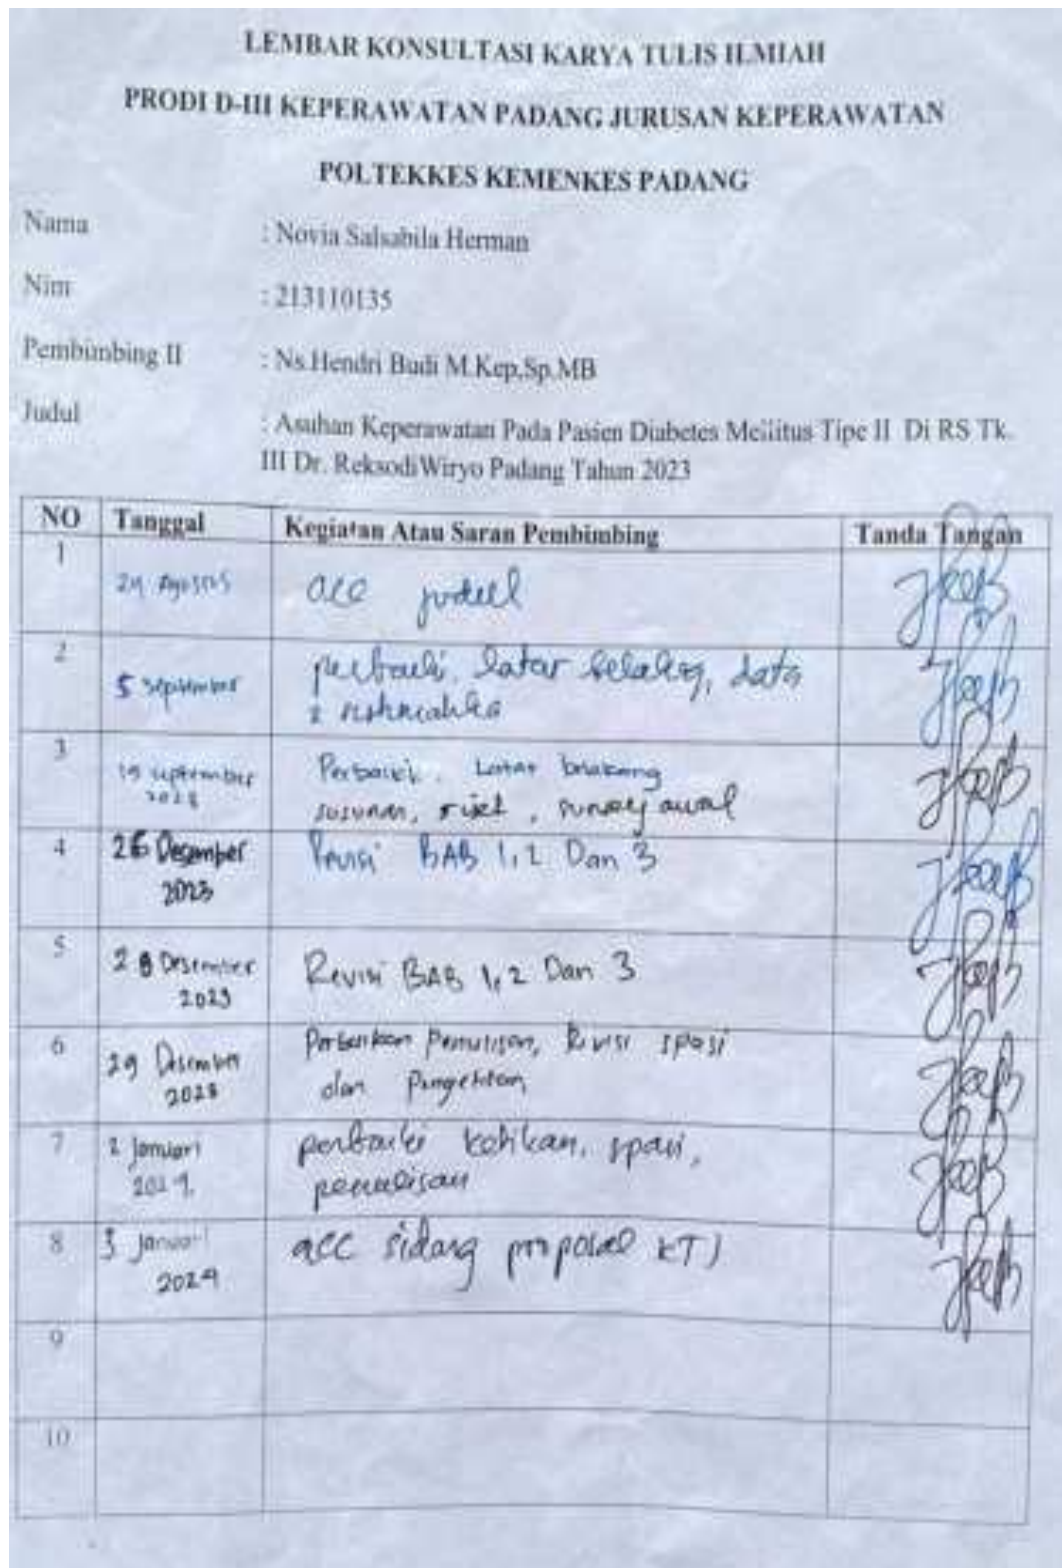 LEMBAR KONSULTASI KARYA TULIS ILMIAH
PRODI D-III KEPERAWATAN PADANG JURUSAN KEPERAWATAN
POLTEKKES KEMENKES PADANG
Nama : Novia Salsabila Herman
Nim : 213110135
Pembimbing II : Ns.Hendri Budi M.Kep,Sp.MB
Judul : Asuhan Keperawatan Pada Pasien Diabetes Mellitus Tipe II Di RS Tk.
III Dr. Reksodi Wiryo Padang Tahun 2023
NO Tanggal Kegiatan Atau Saran Pembimbing Tanda Tangan
1
24 Agustus acc judul
2
5 september perbaiki latar belakang, data
3
19 september Perbaiki Latar belakang
2023 susunan, riset, survey awal
4 26 Desember Revisi BAB 1,2 Dan 3
2023
5 28 Desember Revisi BAB 1,2 Dan 3
2023
6 29 Desember Perbaikan Penulisan, Revisi spasi
2023 dan Pengetikan
7 2 Januari perbaiki ketikan, spasi,
2024 penulisan
8 3 Januari acc sidang proposal KTI
2024
9
10